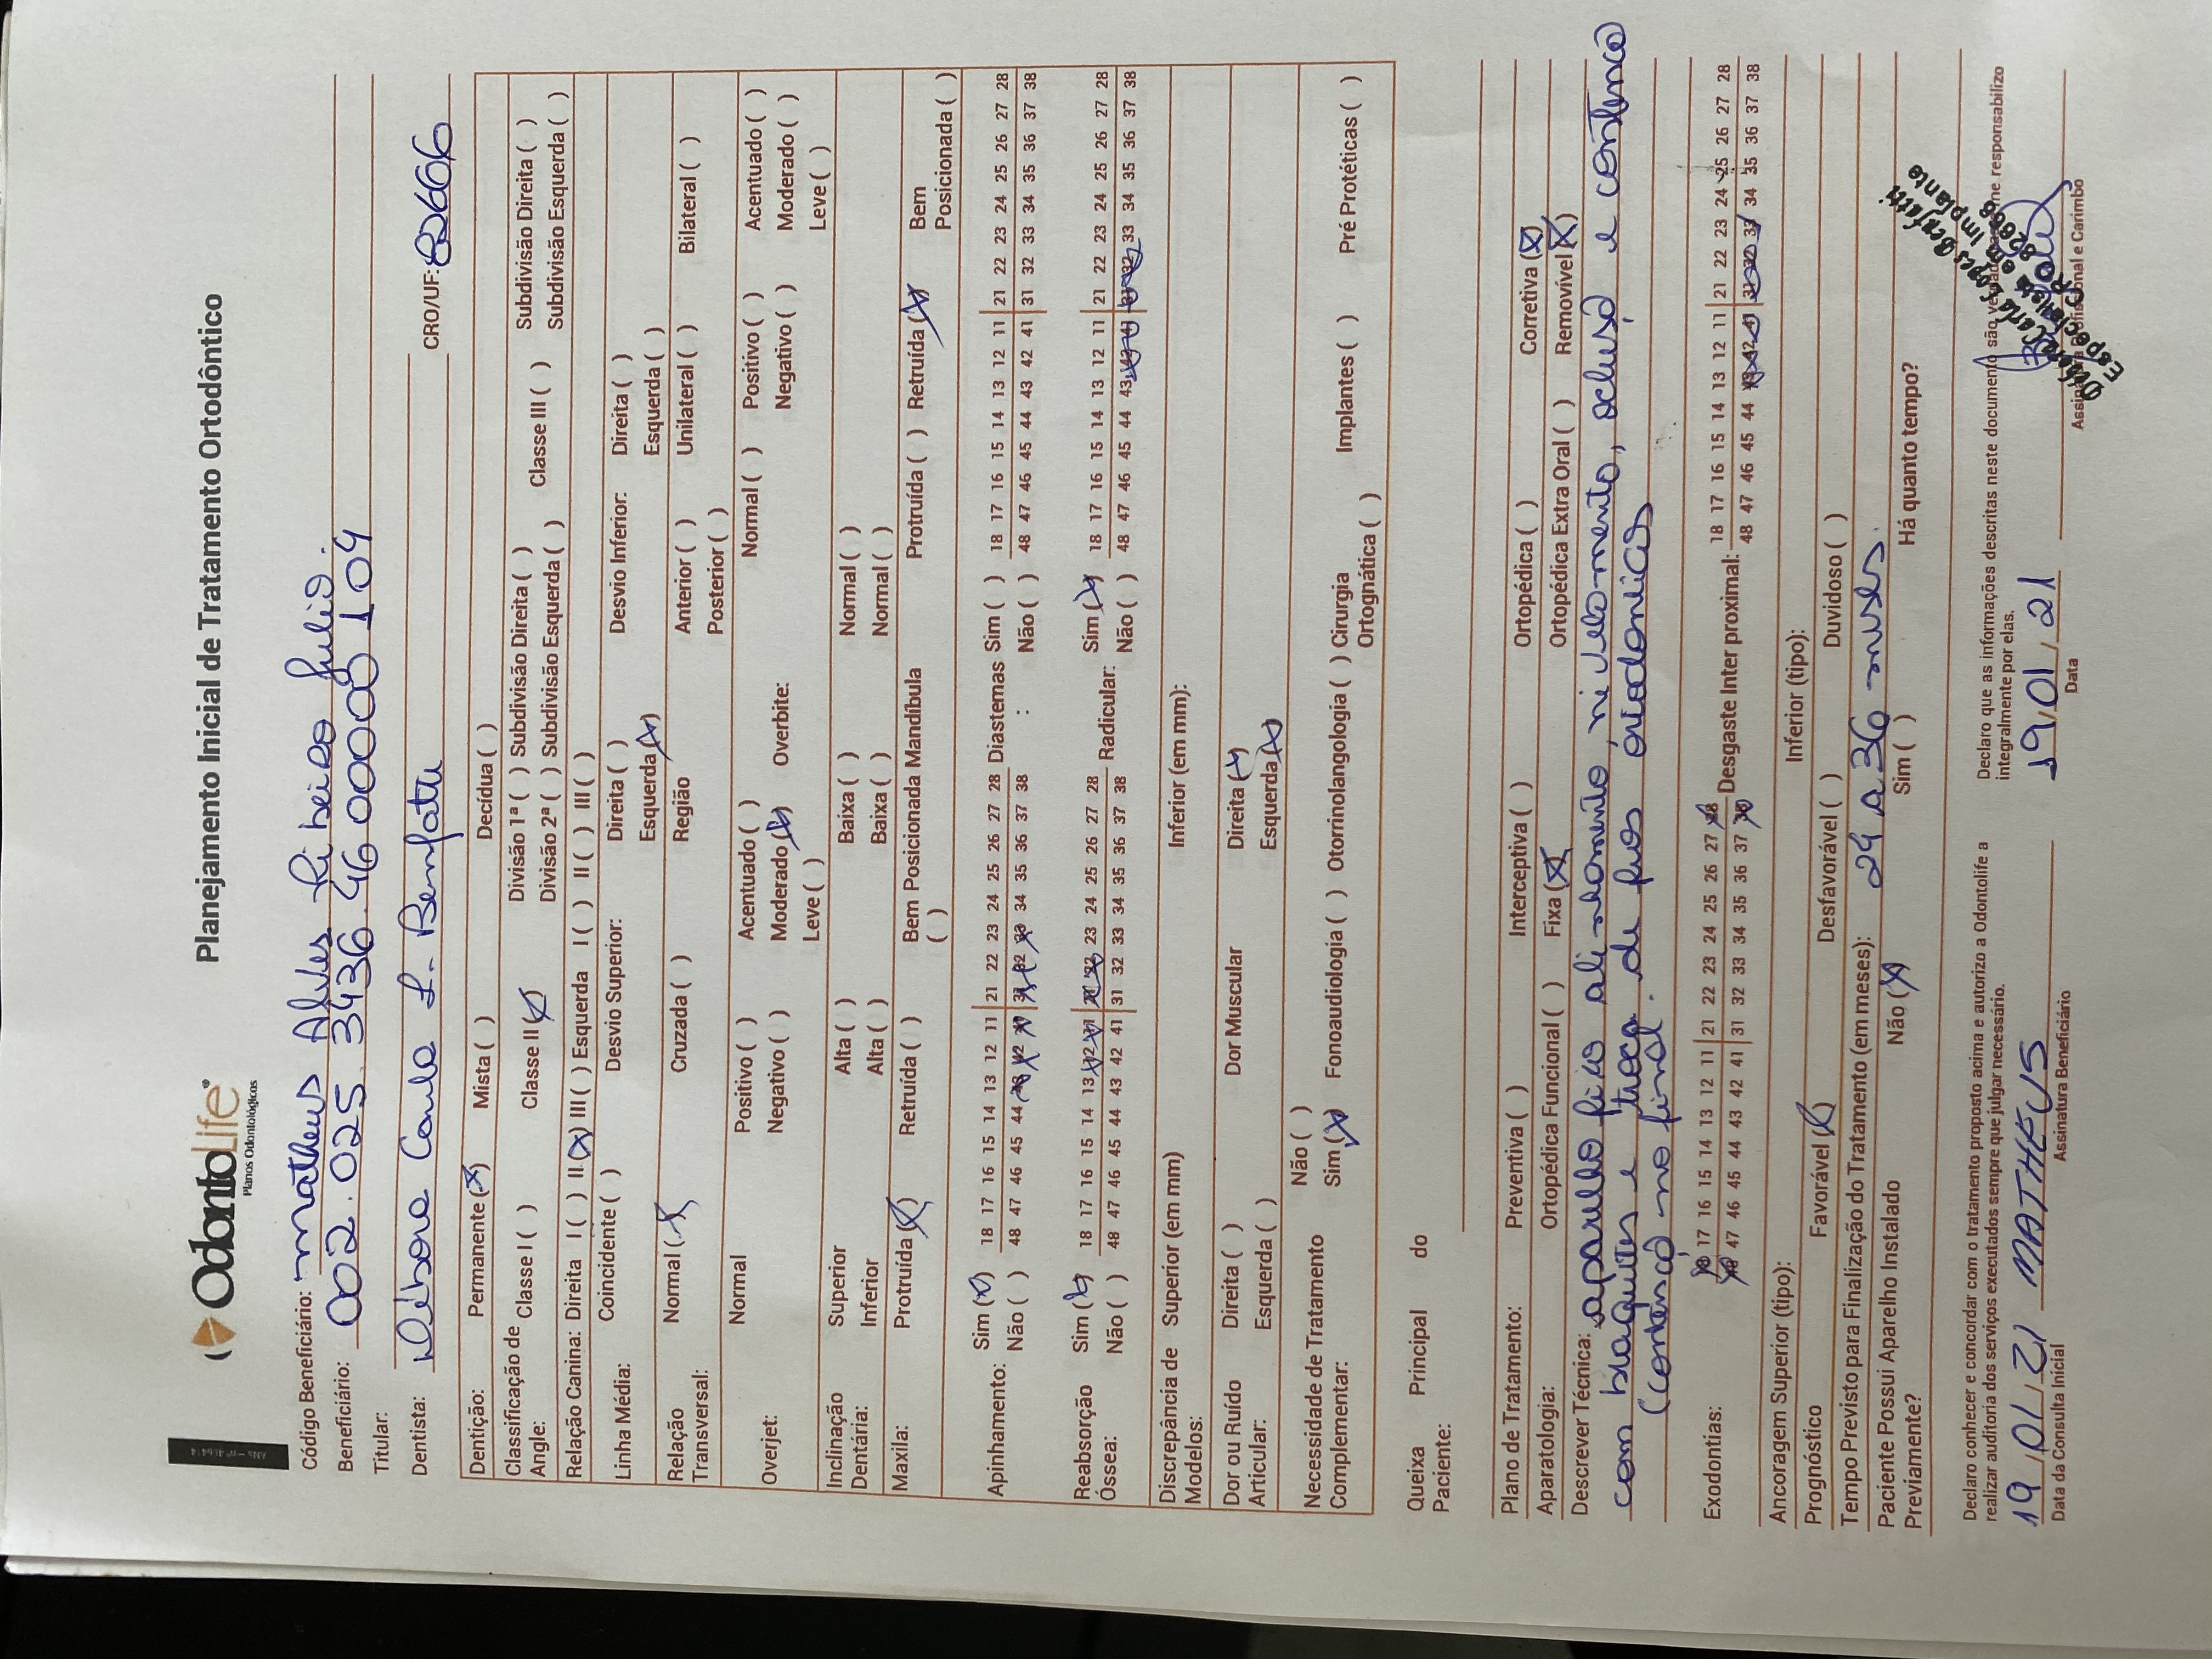 OdontoLife®
Planos Odontológicos
Planejamento Inicial de Tratamento Ortodôntico
Código Beneficiário: Matheus Alves Ribeiro Julio.
Beneficiário: 002.025.3436.46 00000 104
Titular:
Dentista: Débora Carla L. Benfatti CRO/UF: 82666
Dentição: Permanente (X) Mista ( ) Decídua ( )
Classificação de Angle: Classe I ( ) Classe II (X) Divisão 1ª ( ) Subdivisão Direita ( ) Classe III ( ) Subdivisão Direita ( )
Divisão 2ª ( ) Subdivisão Esquerda ( ) Subdivisão Esquerda ( )
Relação Canina: Direita I ( ) II (X) III ( ) Esquerda I ( ) II ( ) III ( )
Linha Média: Coincidente ( ) Desvio Superior: Direita ( ) Desvio Inferior: Direita ( )
Esquerda (X) Esquerda ( )
Relação Transversal: Normal (X) Cruzada ( ) Região Anterior ( ) Unilateral ( ) Bilateral ( )
Posterior ( )
Overjet: Normal Positivo ( ) Acentuado ( ) Overbite: Normal ( ) Positivo ( ) Acentuado ( )
Negativo ( ) Moderado (X) Negativo ( ) Moderado ( )
Leve ( ) Leve ( )
Inclinação Dentária: Superior Alta ( ) Baixa ( ) Normal ( )
Inferior Alta ( ) Baixa ( ) Normal ( )
Maxila: Protruída (X) Retruída ( ) Bem Posicionada ( ) Mandíbula Protruída ( ) Retruída (X) Bem Posicionada ( )
Apinhamento: Sim (X) 18 17 16 15 14 13 12 11 21 22 23 24 25 26 27 28 Diastemas : Sim ( ) 18 17 16 15 14 13 12 11 21 22 23 24 25 26 27 28
Não ( ) 48 47 46 45 44 43 42 41 31 32 33 34 35 36 37 38 Não ( ) 48 47 46 45 44 43 42 41 31 32 33 34 35 36 37 38
Reabsorção Óssea: Sim (X) 18 17 16 15 14 13 12 11 21 22 23 24 25 26 27 28 Radicular: Sim (X) 18 17 16 15 14 13 12 11 21 22 23 24 25 26 27 28
Não ( ) 48 47 46 45 44 43 42 41 31 32 33 34 35 36 37 38 Não ( ) 48 47 46 45 44 43 42 41 31 32 33 34 35 36 37 38
Discrepância de Modelos: Superior (em mm) Inferior (em mm):
Dor ou Ruído Articular: Direita ( ) Dor Muscular Direita (X)
Esquerda ( ) Esquerda (X)
Necessidade de Tratamento Complementar: Não ( )
Sim (X) Fonoaudiologia ( ) Otorrinolangologia ( ) Cirurgia Ortognática ( ) Implantes ( ) Pré Protéticas ( )
Queixa Principal do Paciente:
Plano de Tratamento: Preventiva ( ) Interceptiva ( ) Ortopédica ( ) Corretiva (X)
Aparatologia: Ortopédica Funcional ( ) Fixa (X) Ortopédica Extra Oral ( ) Removível (X)
Descrever Técnica: aparelho fixo alinhamento, nivelamento, oclusão e contenção
com braquetes e troca de fios ortodonticos
(contenção no final.
Exodontias: 18 17 16 15 14 13 12 11 21 22 23 24 25 26 27 28 Desgaste Inter proximal: 18 17 16 15 14 13 12 11 21 22 23 24 25 26 27 28
48 47 46 45 44 43 42 41 31 32 33 34 35 36 37 38 48 47 46 45 44 43 42 41 31 32 33 34 35 36 37 38
Ancoragem Superior (tipo): Inferior (tipo):
Prognóstico Favorável (X) Desfavorável ( ) Duvidoso ( )
Tempo Previsto para Finalização do Tratamento (em meses): 24 a 36 meses.
Paciente Possui Aparelho Instalado Previamente? Não (X) Sim ( ) Há quanto tempo?
Declaro conhecer e concordar com o tratamento proposto acima e autorizo a Odontolife a
realizar auditoria dos serviços executados sempre que julgar necessário.
19/01/21 MATHEUS
Data da Consulta Inicial Assinatura Beneficiário
Declaro que as informações descritas neste documento são me responsabilizo
integralmente por elas.
19/01/21
Data Assinatura Profissional e Carimbo
Débora Carla Lopes Benfatti
Especialista em Implante
82666